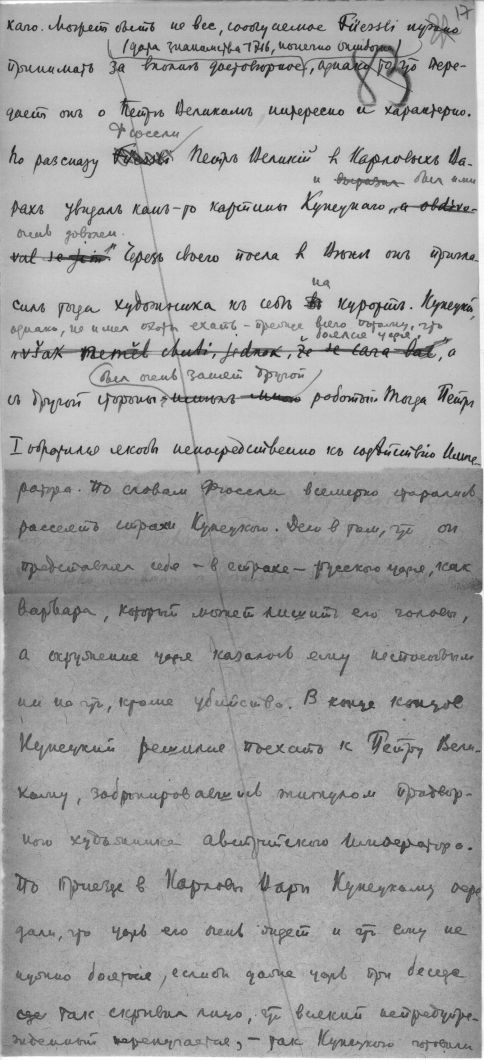 17
каго. Можетъ быть не все, сообщаемое Füessli нужно
(дата знакомства 1716, конечно ошибочна)
принимать за вполнѣ достовѣрное, однако то, что пере-
83
даетъ онъ о Петрѣ Великомъ интересно и характерно.
Фюссли
По разсказу Füessli Петръ Великій в Карловыхъ Ва-
и былъ ими
рахъ увидалъ какія-то картины Купецкаго „a obdivo-
очень доволен.
val se jim“. Черезъ своего посла в Вѣнѣ онъ пригла-
на
силъ тогда художника къ себѣ въ курортъ. Купецкій,
однако, не имел охоты ехать – прежде всего потому, что
боялся царя
však neměl chuti, jednak, že se cara bál“, а
был очень занят другой
съ другой стороны работой. Тогда Петръ
I обратился якобы непосредственно къ содѣйствію Импе-
ратора. По словам Фюссли всемерно старались
рассеять страхи Купецкого. Дело в том, что он
представлял себе – в страхе – русского царя, как
варвара, который может лишить его головы,
а окружение царя казалось ему неспособным
ни на что, кроме убийства. В конце концов
Купецкий решился поехать к Петру Вели-
кому, забронировавшись титулом придвор-
ного художника австрийского императора.
По приезде в Карловы Вары Купецкому пере
дали, что царь его очень ждет и что ему не
нужно бояться, если бы даже царь при беседе
так скривил лицо, что всякий непредупре-
жденный перепугается, – так Купецкого готовили